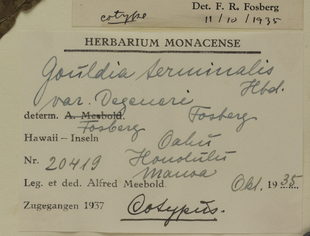 Det. F. R. Fosberg
cotype 11/10/1935
HERBARIUM MONACENSE
Gouldia terminalis
Hbd.
var. Degeneri
Fosberg
determ. A. Meebold.
Fosberg
Hawaii – Inseln Oahu
Nr. 20419 Honolulu
Manoa
Leg. et ded. Alfred Meebold Okt. 1935
Zugegangen 1937 Cotypus.